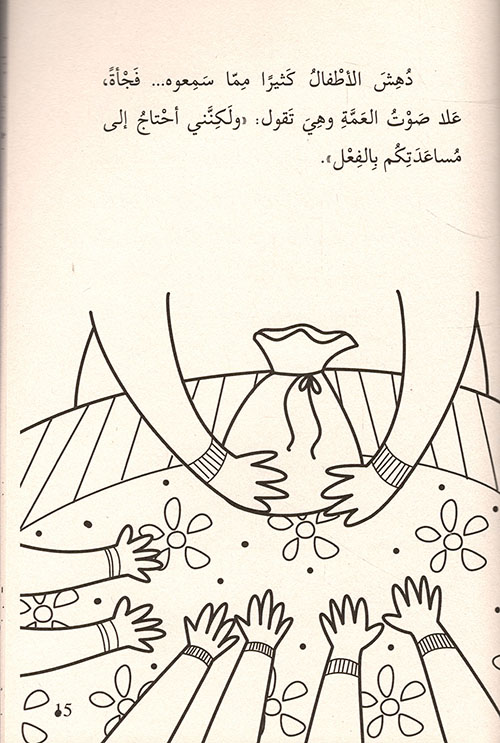 دُهِشَ الأطْفالُ كَثيرًا مِمّا سَمِعوه... فَجْأةً،
عَلا صَوْتُ العَمَّةِ وهِيَ تَقول: «ولَكِنَّني أحْتاجُ إلى
مُساعَدَتِكُم بِالفِعْل».
15